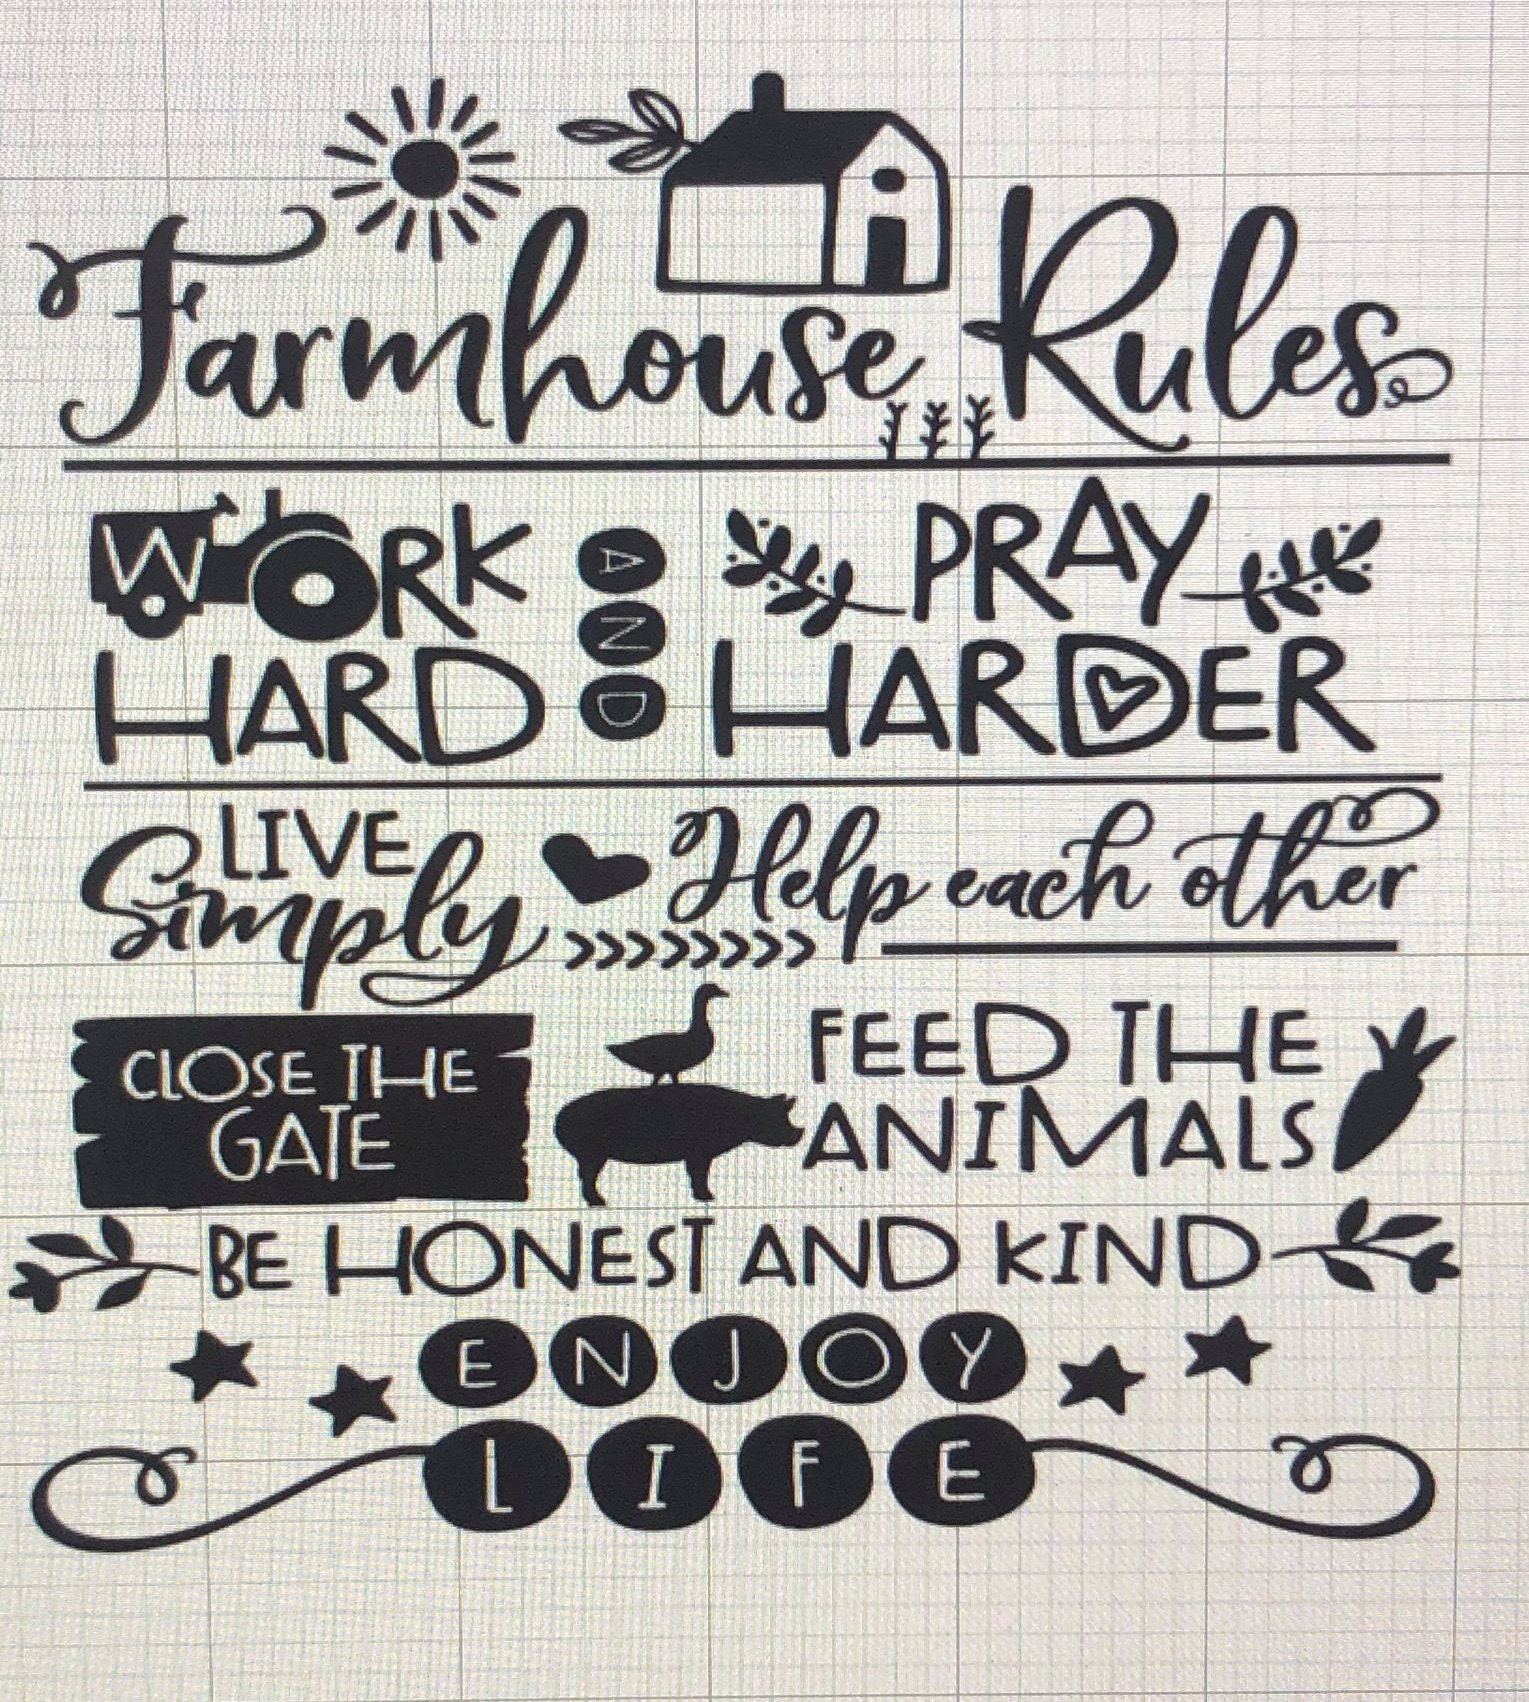 Farmhouse Rules
WORK AND PRAY
HARD HARDER
LIVE
Simply Help each other
CLOSE THE FEED THE
GATE ANIMALS
BE HONEST AND KIND
ENJOY
LIFE